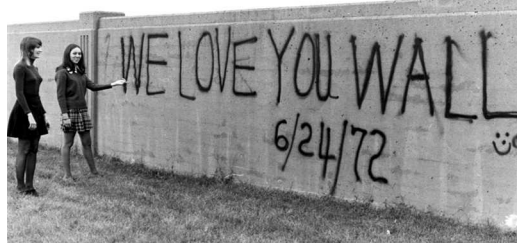 WE LOVE YOU WALL
6/24/72